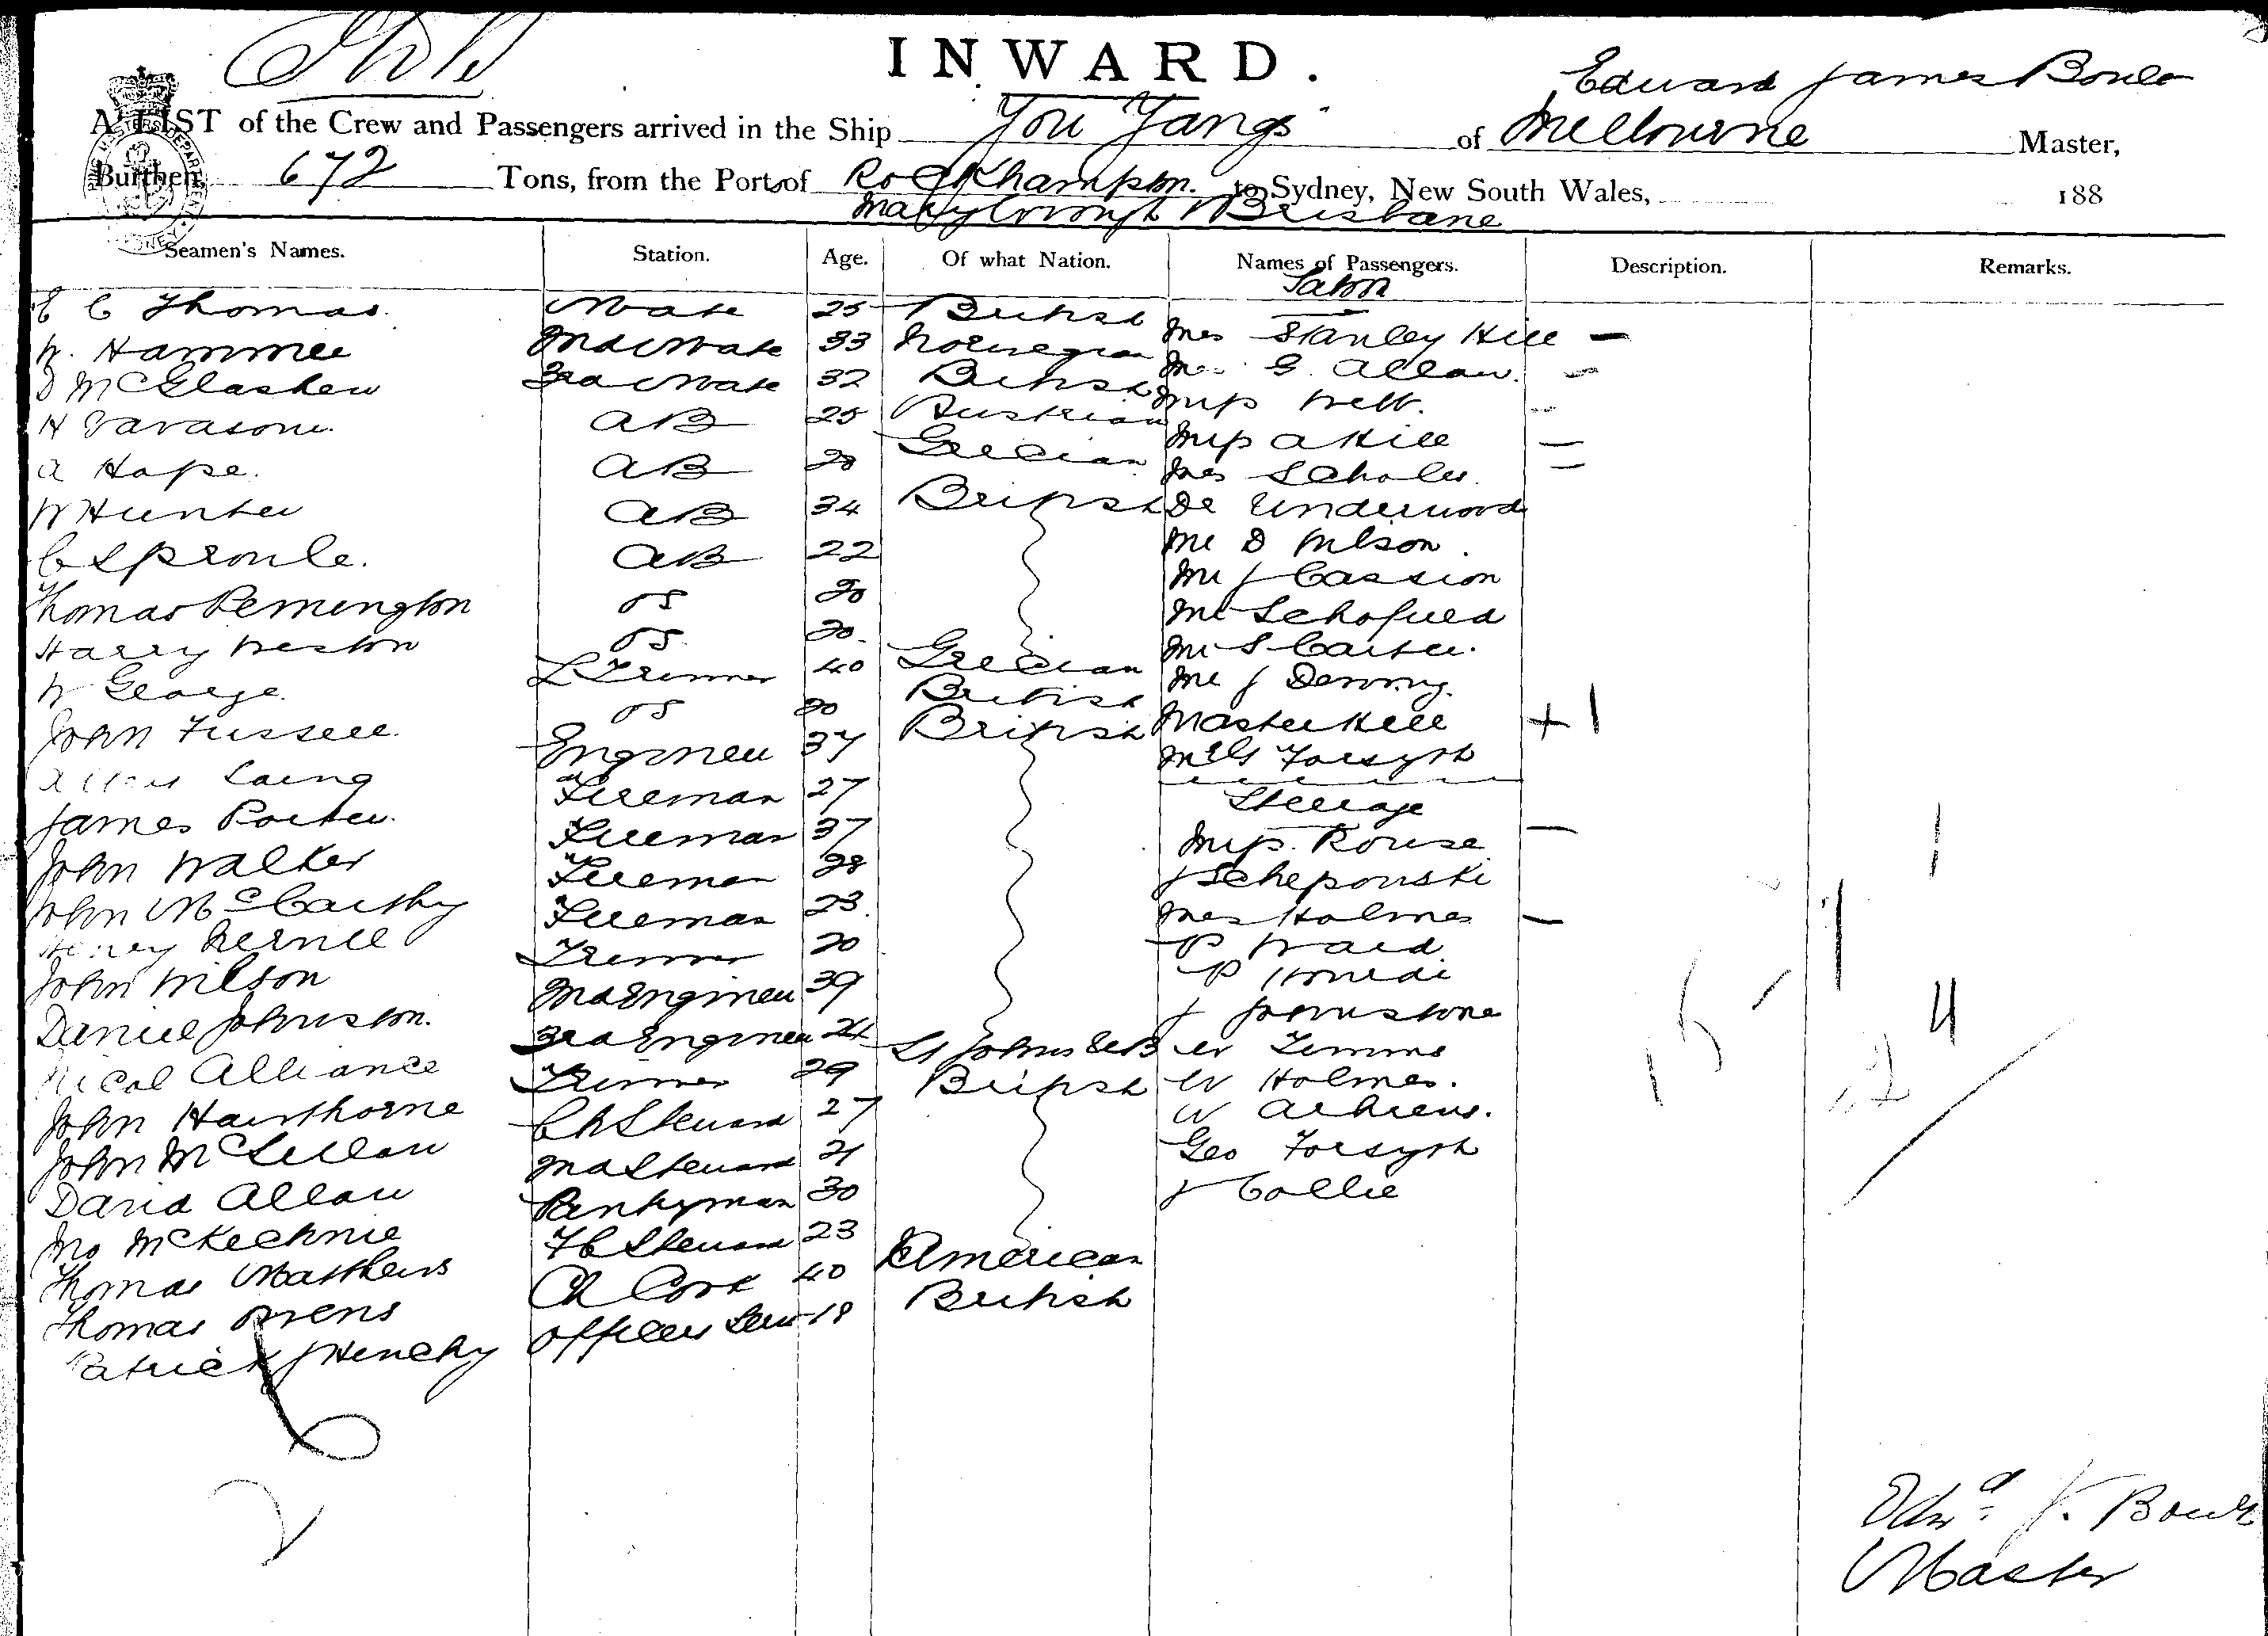 INWARD.
Edward James Boult
A LIST of the Crew and Passengers arrived in the Ship You Yangs of Melbourne Master,
Burthen, 672 Tons, from the Port of Rockhampton. to Sydney, New South Wales, 188
Maryborough & Brisbane
Seamen's Names. Station. Age. Of what Nation. Names of Passengers. Description. Remarks.
Saloon
E C Thomas Mate 25 British Mrs Stanley Hill —
W. Hammer 2nd Mate 33 Norwegian G. Allan. —
D McGlashen 3rd Mate 32 British Miss Webb.
H AB 25 Austrian Miss A Hill —
A Hope. AB 28 Grecian Mrs Scholes. —
W Hunter AB 34 British Dr Underwood
C Sproule. AB 22 Mr D Wilson.
Thomas Remington OS 20 Mr J Cassion
Harry Weston OS 20. Mr Schofield
W George. Trimmer 40 Grecian Mr S Carter.
John Fussell. OS 20 British Mr J Denning.
Laing Engineer 37 British Master Hill + 1
James Porter. Fireman 27 Forsyth
John Walker Fireman 37 Steerage
John McCarthy Fireman 28 Miss. Rouse —
Henry Fireman 23. J Scheponski
John Wilson Trimmer 20 Mrs Holmes —
Daniel Johnston. 2nd Engineer 39 P Ward
Nicol Alliance 3rd Engineer 24 St Johns NB P
John Hawthorne Trimmer 29 British J Johnstone
John McLellan Ch Steward 27 W Timms
David Allan 2nd Steward 21 W Holmes.
Jno McKechnie Pantryman 30 W Achiens.
Thomas Matthews FC Steward 23 Geo Forsyth
Thomas Owens Ch Cook 40 American J Collie
Patrick J Henchy Officers Serv 18 British
4
Edwd. J. Boult
Master